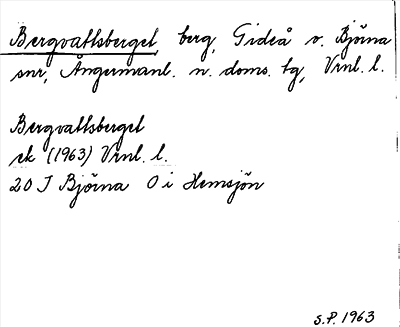 Bergvattsberget, berg, Gideå o. Björna
snr, Ångermanl. n. doms. tg, Vrnl. l.
Bergvattsberget
ek (1963) Vrnl. l.
20 J Björna O i Hemsjön
S.P. 1963